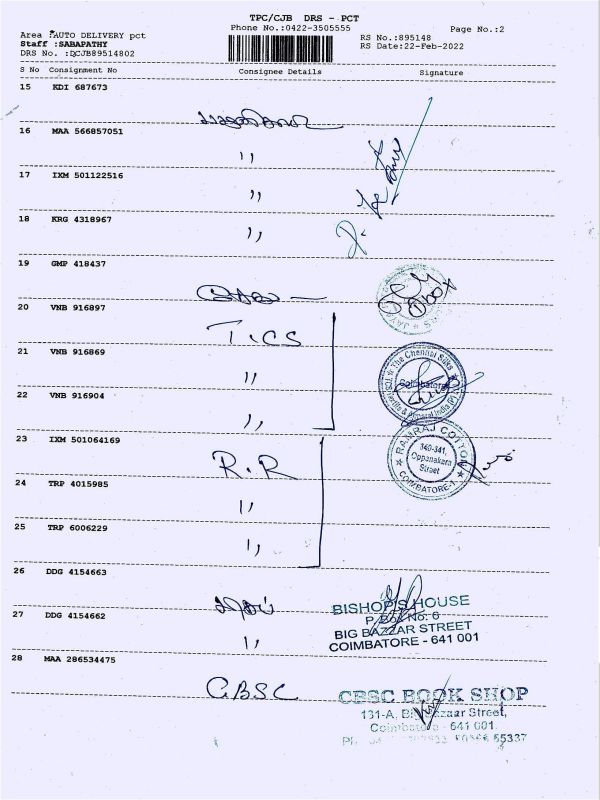 TPC/CJB DRS - PCT
Phone No.:0422-3505555
Page No.:2
Area :AUTO DELIVERY pct
RS No.:895148
Staff :SABAPATHY
RS Date:22-Feb-2022
DRS No. :DCJB89514802
S No Consignment No Consignee Details Signature
15 KDI 687673
16 MAA 566857051
,,
17 IXM 501122516
,,
18 KRG 4318967
,,
19 GMP 418437
20 VNB 916897
T.CS
21 VNB 916869
,,
The Chennai Silks
Coimbatore
22 VNB 916904
,,
23 IXM 501064169
R.R
RAMRAJ COTTON
340-341,
Oppanakara
Street
COIMBATORE-1.
24 TRP 4015985
,,
25 TRP 6006229
,,
26 DDG 4154663
BISHOP'S HOUSE
P. Box No: 6
BIG BAZZAR STREET
COIMBATORE - 641 001
27 DDG 4154662
,,
28 MAA 286534475
CBSC
CBSC BOOK SHOP
131-A, Big Bazaar Street,
Coimbatore - 641 001.